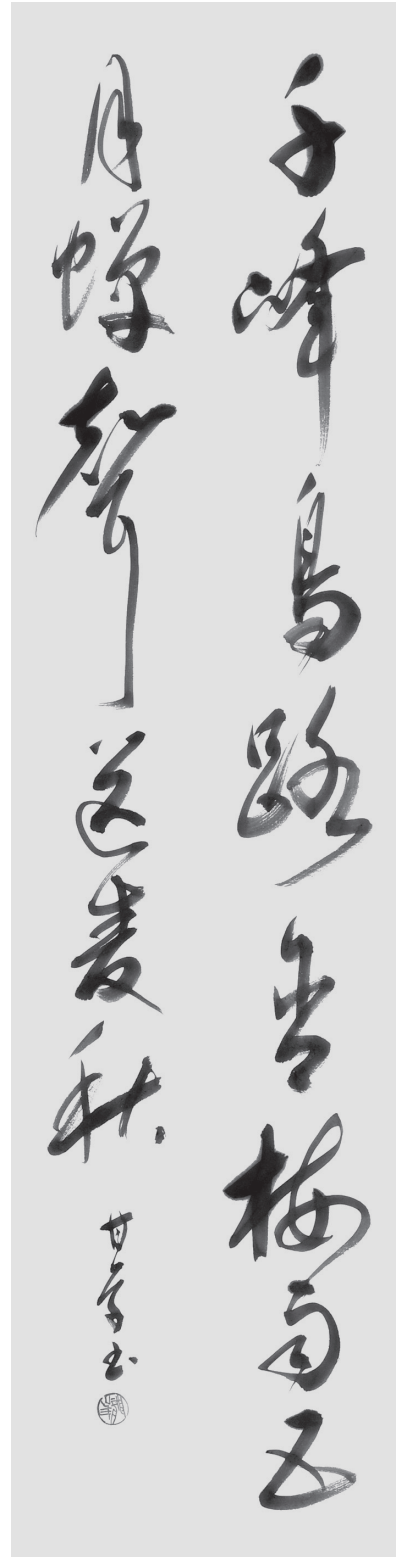 千峰鳥路含梅雨五
月蟬聲送麦秋
甘草书